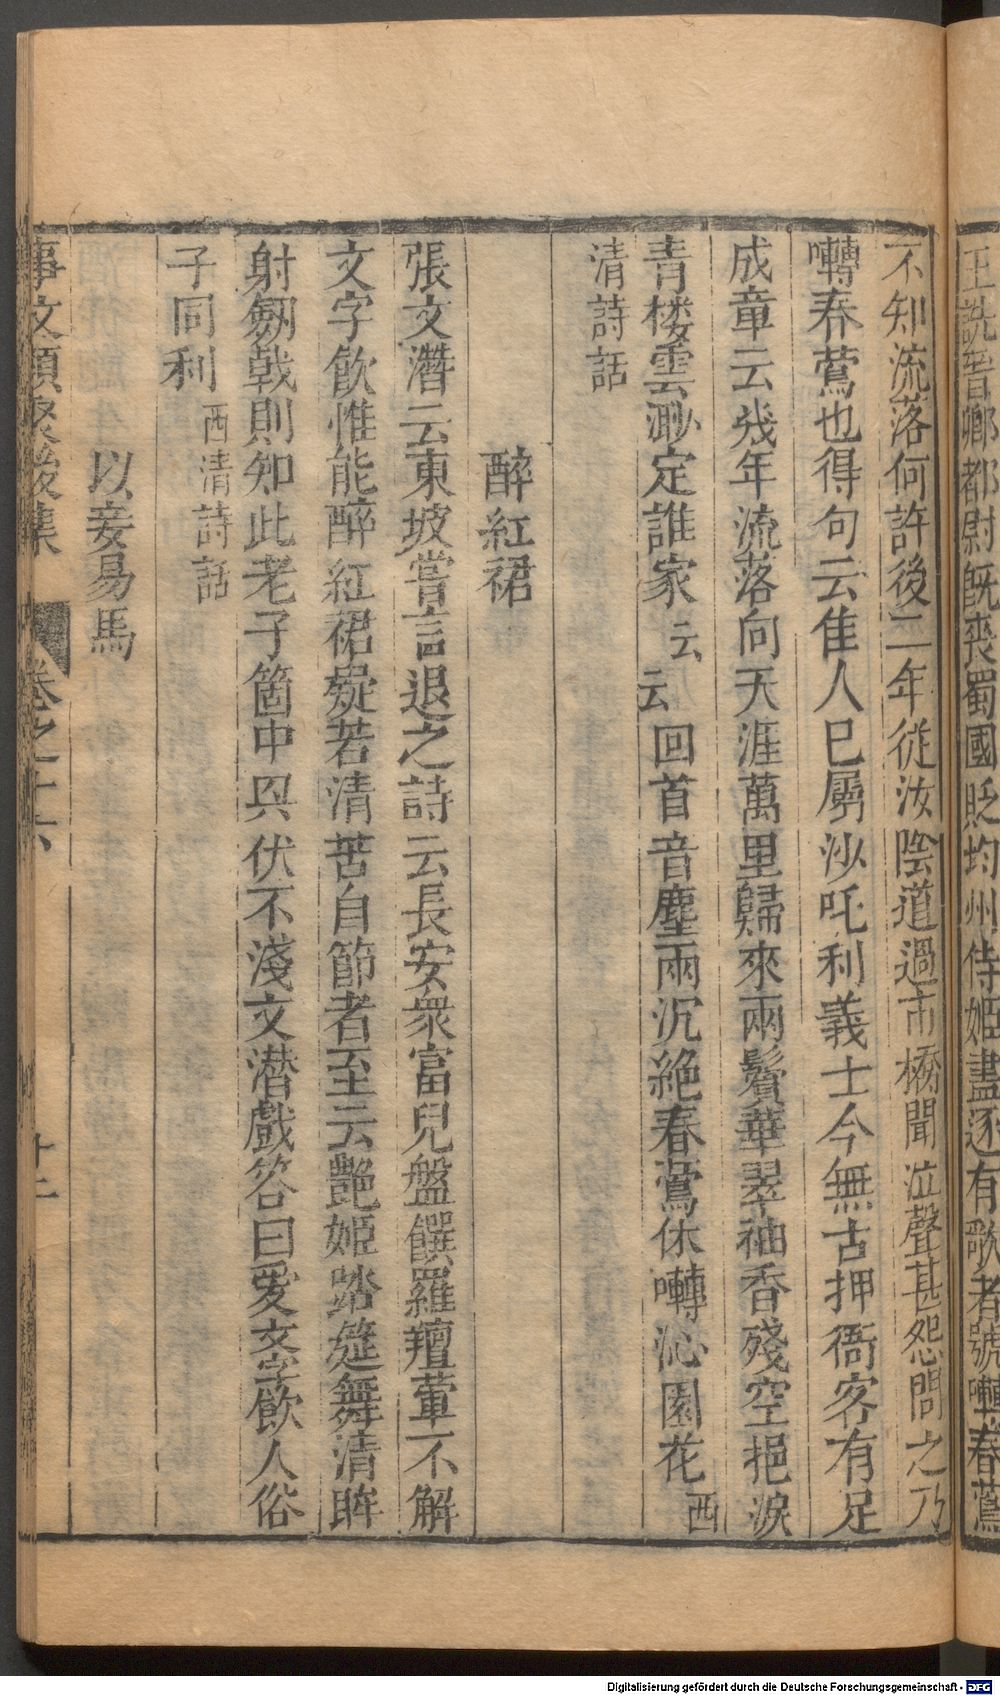 王詵晉卿都尉既喪蜀國貶均州侍姬盡逐有歌者號囀春鶯
不知流落何許後二年從汝陰道過市橋聞泣聲甚怨問之乃
囀春鶯也得句云佳人巳屬沙吒利義士今無古押衙客有足
成章云幾年流落向天涯萬里歸來兩鬢華翠袖香殘空挹淚
青楼雲渺定誰家云云回首音塵兩沉絶春鶯休囀沁園花西
清詩話
醉紅裙
張文潛云東坡嘗言退之詩云長安衆富兒盤饌羅羶葷不解
文字飲惟能醉紅裙疑若清苦自節者至云艶姬踏筵舞清眸
射劒戟則知此老子箇中㒷伏不淺文潜戲答曰爱文字飲人俗
子同利西清詩話
以妾易馬
事文類聚後集 卷之十六 十二
Digitalisierung gefördert durch die Deutsche Forschungsgemeinschaft - DFG